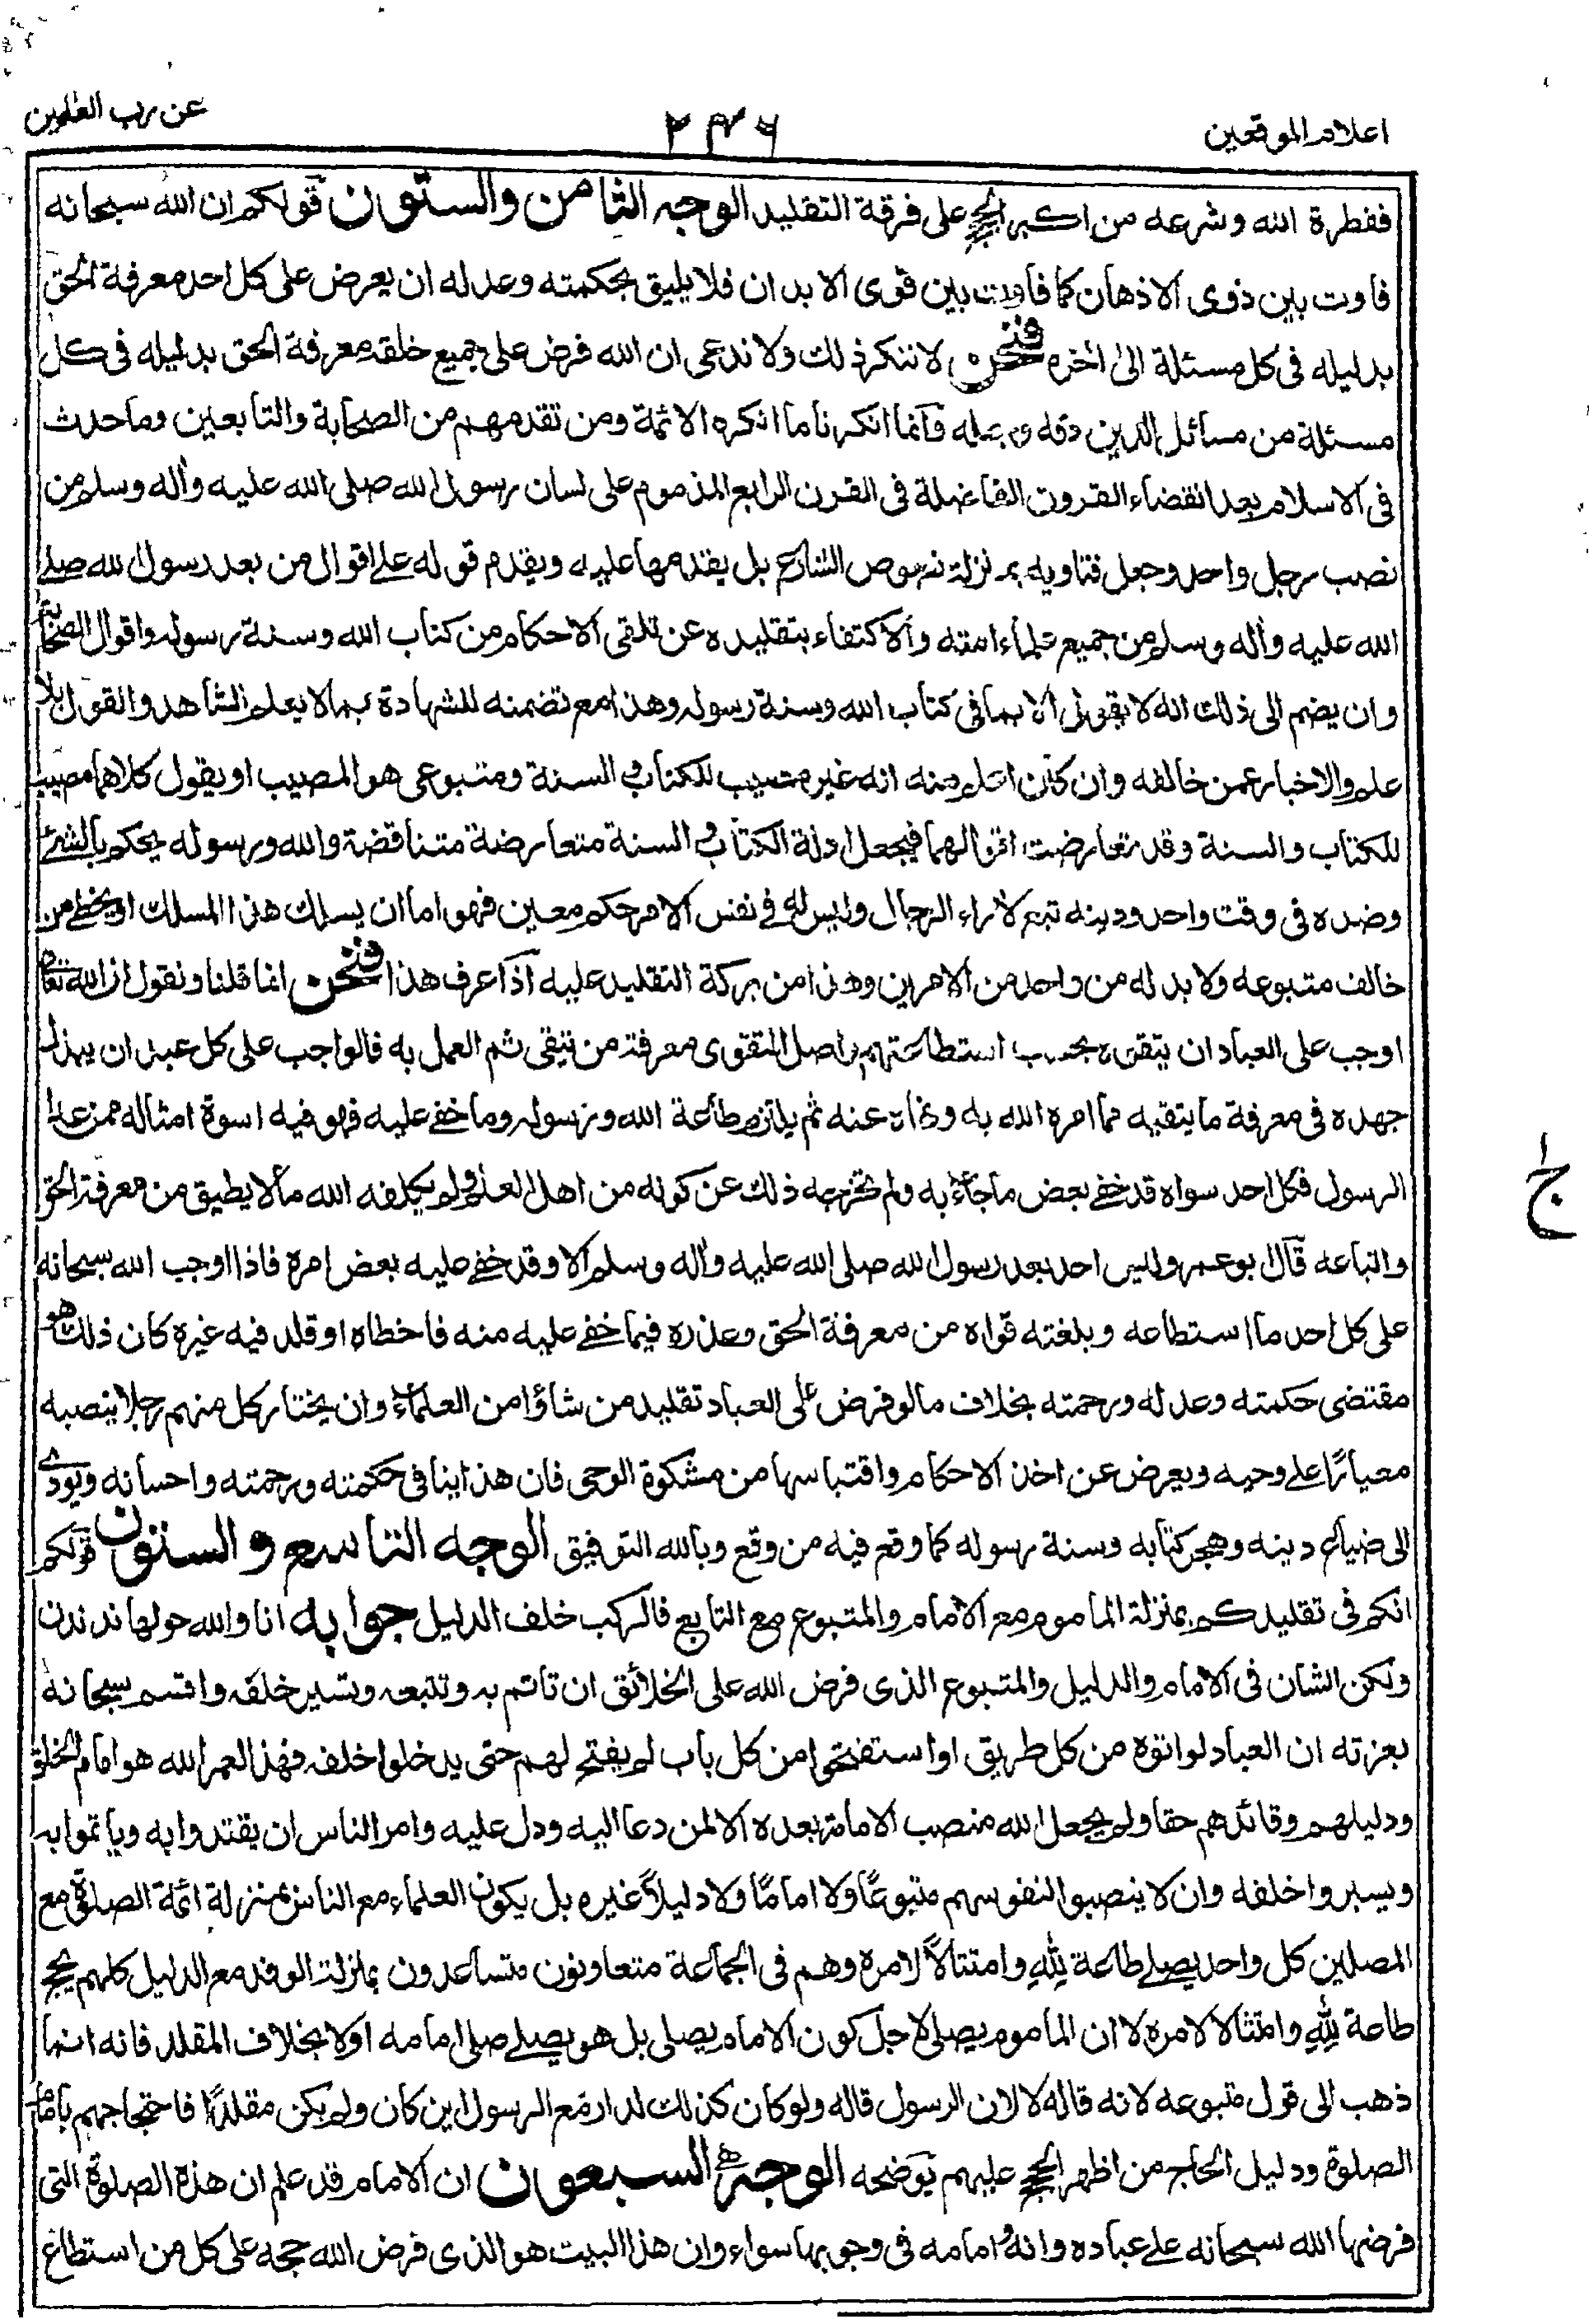 اعلام الموقعين
۲۴۶
عن رب العلمين
ففطرة الله وشرعه من اكبر الحجج على فرقة التقليد الوجه الثامن والستون قولكم ان الله سبحانه
فاوت بين ذوى الاذهان كما فاوت بين قوى الابدان فلا يليق بحكمته وعدله ان يعرض على كل احد معرفة الحق
بدليله فى كل مسئلة الى اخره فنحن لا ننكر ذلك ولا ندعى ان الله فرض على جميع خلقه معرفة الحق بدليله فى كل
مسئلة من مسائل الدين دقه وجله فانما انكرنا ما انكره الائمة ومن تقدمهم من الصحابة والتابعين وما حدث
فى الاسلام بعد انقضاء القرون الفاضلة فى القرن الرابع المذموم على لسان رسول الله صلى الله عليه واله وسلم من
نصب رجل واحد وجعل فتاويه بمنزلة نصوص الشارع بل يقدمها عليه ويقدم قوله على اقوال من بعد رسول الله صلى
الله عليه واله وسلم من جميع علماء امته والاكتفاء بتقليده عن تلقى الاحكام من كتاب الله وسنة رسوله واقوال الصحابة
وان يضم الى ذلك انه لا يقول الا بما فى كتاب الله وسنة رسوله وهذا مع تضمنه للشهادة بما لا يعلم الشاهد والقول بلا
علم والاخبار عمن خالفه وان كان اعلم منه انه غير مصيب للكتاب والسنة ومتبوعى هو المصيب او يقول كلاهما مصيب
للكتاب والسنة وقد تعارضت اقوالهما فيجعل ادلة الكتاب والسنة متعارضة متناقضة والله ورسوله يحكم بالشئ
وضده فى وقت واحد ودينه تبع لاراء الرجال وليس له فى نفس الامر حكم معين فهو اما ان يسلك هذا المسلك او يخطئ من
خالف متبوعه ولا بد له من واحد من الامرين وهذا من بركة التقليد عليه اذا عرف هذا فنحن انما قلنا ونقول ان الله تعالى
اوجب على العباد ان يتقوه بحسب استطاعتهم واصل التقوى معرفة من يتقى ثم العمل به فالواجب على كل عبد ان يبذل
جهده فى معرفة ما يتقيه مما امره الله به ونهاه عنه ثم يلتزم طاعة الله ورسوله وما خفى عليه فهو فيه اسوة امثاله ممن عدا
الرسول فكل احد سواه قد خفى بعض ما جاء به ولم تخرجه ذلك عن كونه من اهل العلم ولم يكلفه الله ما لا يطيق من معرفة الحق
واتباعه قال ابو عمر وليس احد بعد رسول الله صلى الله عليه واله وسلم الا وقد خفى عليه بعض امره فاذا اوجب الله سبحانه
على كل احد ما استطاعه وبلغته قواه من معرفة الحق وعذره فيما خفى عليه منه فاخطاه او قلد فيه غيره كان ذلك هو
مقتضى حكمته وعدله ورحمته بخلاف ما لو فرض على العباد تقليد من شاؤا من العلماء وان يختار كل منهم رجلا ينصبه
معيارًا على وحيه ويعرض عن اخذ الاحكام واقتباسها من مشكوة الوحى فان هذا ينافى حكمته ورحمته واحسانه ويودى
الى ضياع دينه وهجر كتابه وسنة رسوله كما وقع فيه من وقع وبالله التوفيق الوجه التاسع والستون قولكم
انكم فى تقليدكم بمنزلة الماموم مع الامام والمتبوع مع التابع فالركب خلف الدليل جوابه انا والله حولها ندندن
ولكن الشان فى الامام والدليل والمتبوع الذى فرض الله على الخلائق ان تاتم به وتتبعه وتسير خلفه واقسم سبحانه
بعزته ان العباد لو اتوه من كل طريق او استفتحوا من كل باب لم يفتح لهم حتى يدخلوا خلفه فهذا لعمر الله هو امام الخلق
ودليلهم وقائدهم حقا ولم يجعل الله منصب الامامة بعده الا لمن دعا اليه ودل عليه وامر الناس ان يقتدوا به وياتموا به
ويسيروا خلفه وان لا ينصبوا لنفوسهم متبوعًا ولا امامًا ولا دليلًا غيره بل يكون العلماء مع الناس بمنزلة ائمة الصلوة مع
المصلين كل واحد يصلى طاعة لله وامتثالًا لامره وهم فى الجماعة متعاونون متساعدون بمنزلة الوفد مع الدليل كلهم يحج
طاعة لله وامتثالا لامره لا ان الماموم يصلى لاجل كون الامام يصلى بل هو يصلى صلى امامه اولا بخلاف المقلد فانه انما
ذهب الى قول متبوعه لانه قاله لا لان الرسول قاله ولو كان كذلك لدار مع الرسول اين كان ولم يكن مقلدًا فاحتجاجهم بامام
الصلوة ودليل الحاج من اظهر الحجج عليهم يوضحه الوجه السبعون ان الامام قد علم ان هذه الصلوة التى
فرضها الله سبحانه على عباده وانه وامامه فى وجوبها سواء وان هذا البيت هو الذى فرض الله حجه على كل من استطاع
ج ۱